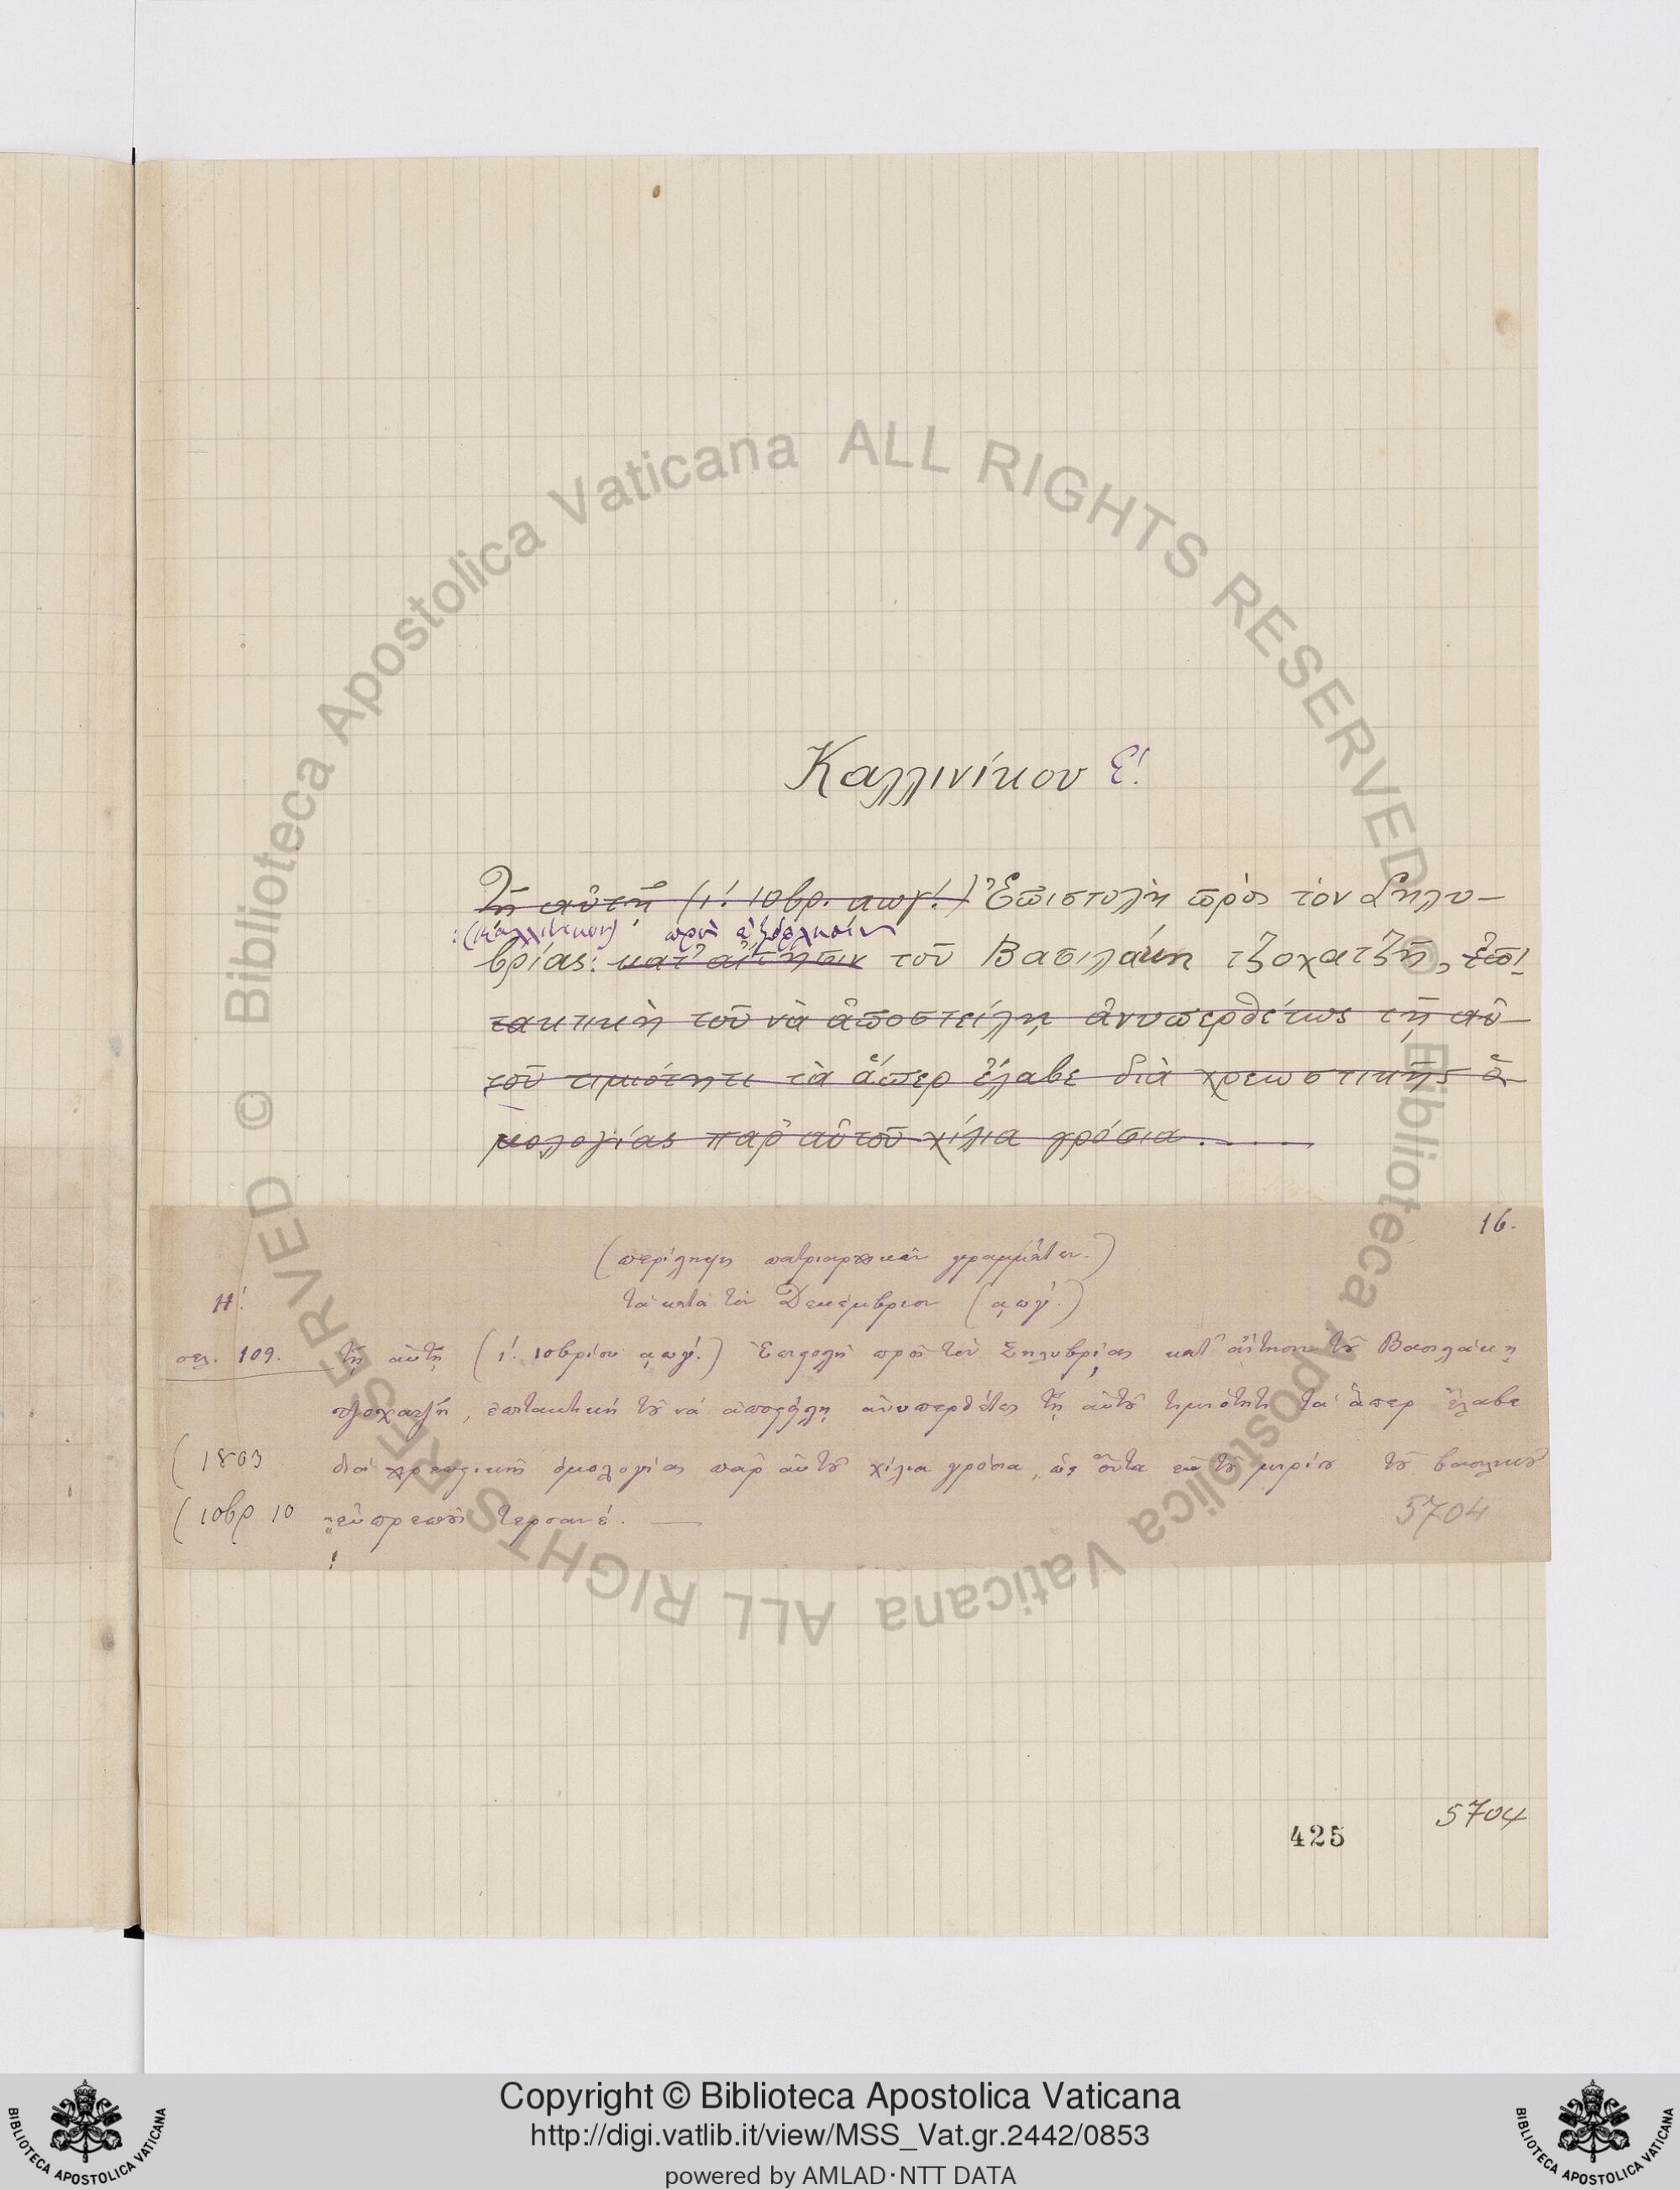 Καλλινίκου Ε΄.
Τῇ αὐτῇ (ι΄. 10βρ. αωγ΄.) Ἐπιστολὴ πρὸς τὸν Σηλυ-
(Καλλίνικον) πρὸς ἐξόφλησιν
βρίας: κατ' αἴτησιν τοῦ Βασιλάκη τζοχατζῆ, ἐπι-
τακτικὴ τοῦ νὰ ἀποστείλῃ ἀνυπερθέτως τῇ αὐ-
τοῦ τιμιότητι τὰ ἅπερ ἔλαβε διὰ χρεωστικῆς ὁ-
μολογίας παρ' αὐτοῦ χίλια γρόσια.
16.
(περίληψις πατριαρχικῶν γραμμάτων.)
Η΄. τὰ κατὰ τὸν Δεκέμβριον (αωγ΄.)
σελ. 109. τῇ αὐτῇ (ι΄. 10βρίου αωγ΄.) Ἐπιστολὴ πρὸς τὸν Σηλυβρίας κατ' αἴτησιν τοῦ Βασιλάκη
τζοχατζῆ, ἐπιτακτικὴ τοῦ νὰ ἀποστείλῃ ἀνυπερθέτως τῇ αὐτοῦ τιμιότητι τὰ ἅπερ ἔλαβε
(1803 διὰ χρεωστικῆς ὁμολογίας παρ' αὐτοῦ χίλια γρόσια, ὡς ὄντα ἐκ τοῦ μιρίου τοῦ βασιλικοῦ
(10βρ 10 εὐπρεποῦς τερσανέ. 5704
5704
425
Copyright © Biblioteca Apostolica Vaticana
http://digi.vatlib.it/view/MSS_Vat.gr.2442/0853
powered by AMLAD·NTT DATA
BIBLIOTECA APOSTOLICA VATICANA
BIBLIOTECA APOSTOLICA VATICANA
Biblioteca Apostolica Vaticana ALL RIGHTS RESERVED ©
Biblioteca Apostolica Vaticana ALL RIGHTS RESERVED ©